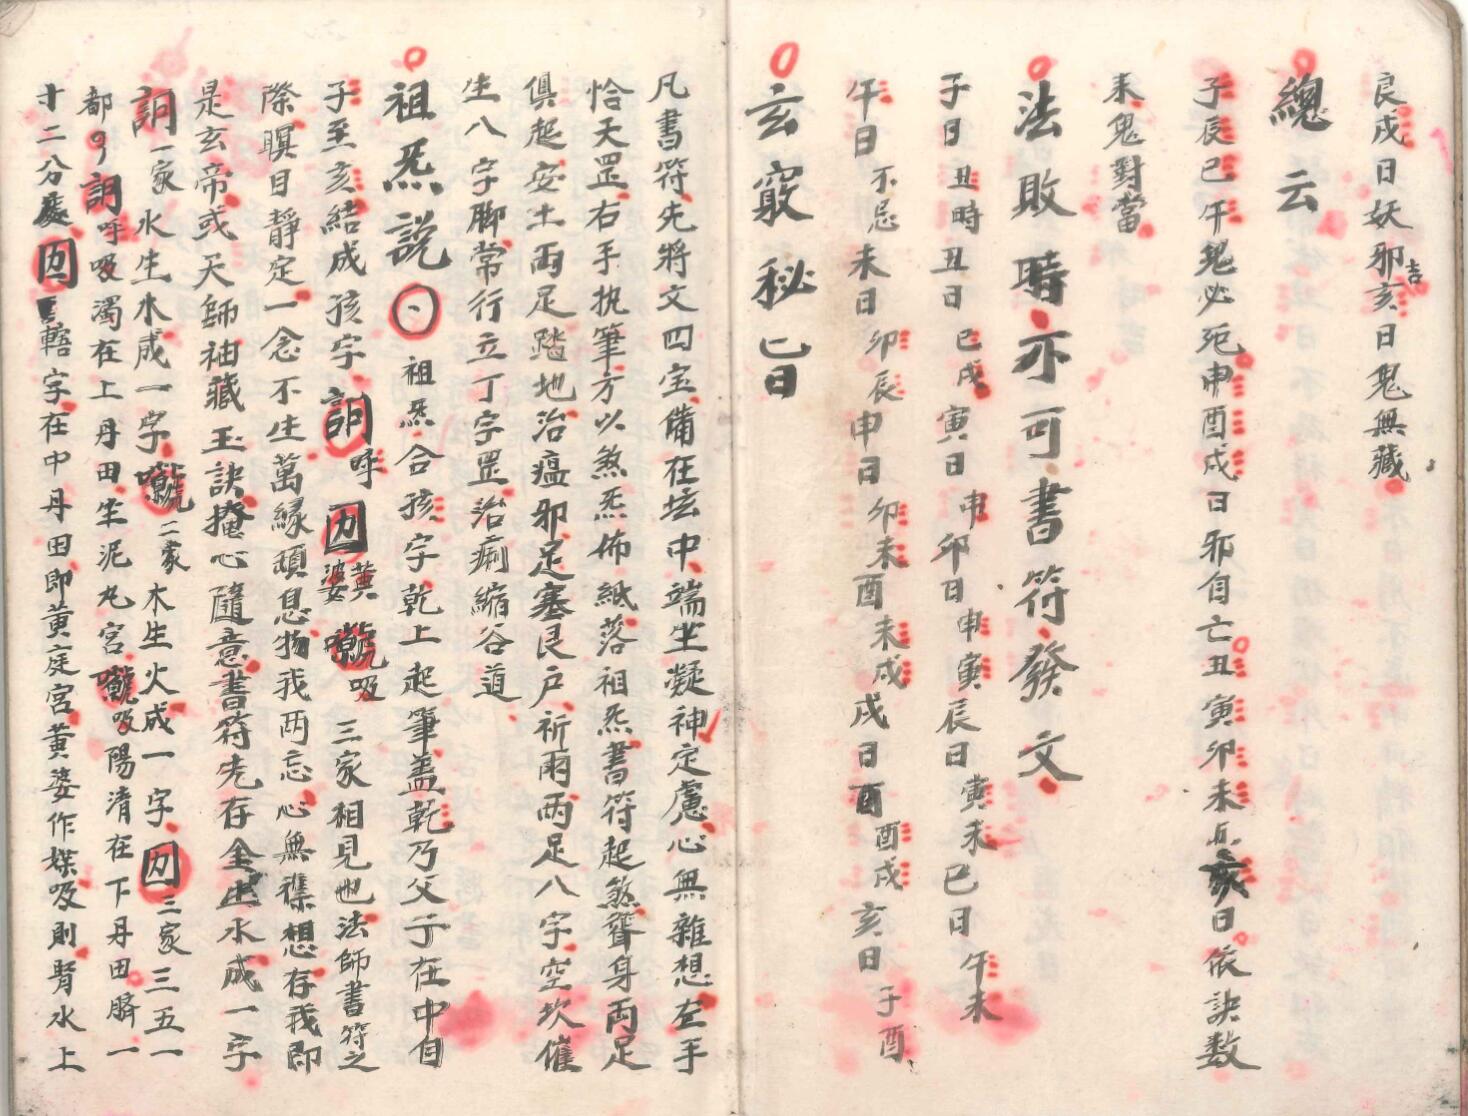 良戌日妖邪亥吉日鬼無藏
總云
子辰巳午鬼必死申酉戌日邪自亡丑寅卯未亥日依訣數
未鬼對當
法敗時亦可書符發文
子日丑時丑日巳戌寅日申卯日申寅辰日寅未巳日午未
午日不忌未日卯辰申日卯未酉未戌戌日酉酉戌亥日子酉
玄竅秘旨
凡書符先將文四宝備在坛中端坐凝神定慮心無雜想左手
恰天罡右手执筆方以煞炁佈紙落祖炁書符起煞聳身両足
俱起安土両足踏地治瘟邪足塞艮户祈雨両足八字空坎催
生八字脚常行立丁字罡治痢縮谷道
祖炁説 祖炁合孩字乾上起筆盖乾乃父子在中自
子至亥結成孩字 呼 黄婆 吸 三家相見也法師書符之
際瞑目靜定一念不生萬緣頓息物我両忘心無襍想存我即
是玄帝或天師袖藏玉訣掩心隨意書符先存金生水成一字
一家水生木成一字 二家木生火成一字 三家三五一
都 呼吸濁在上丹田坐泥丸宮 吸陽清在下丹田臍一
十二分處 轄字在中丹田即黄庭宮黄婆作媒吸則腎水上